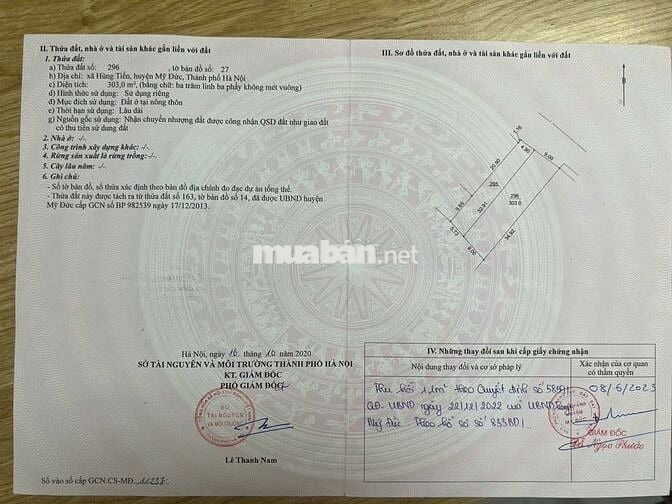 II. Thửa đất, nhà ở và tài sản khác gắn liền với đất
1. Thửa đất:
a) Thửa đất số: 296 , tờ bản đồ số: 27
b) Địa chỉ: xã Hùng Tiến, huyện Mỹ Đức, Thành phố Hà Nội
c) Diện tích: 303,0 m², (bằng chữ: ba trăm linh ba phẩy không mét vuông)
d) Hình thức sử dụng: Sử dụng riêng
đ) Mục đích sử dụng: Đất ở tại nông thôn
e) Thời hạn sử dụng: Lâu dài
g) Nguồn gốc sử dụng: Nhận chuyển nhượng đất được công nhận QSD đất như giao đất
có thu tiền sử dụng đất
2. Nhà ở: -/-
3. Công trình xây dựng khác: -/-
4. Rừng sản xuất là rừng trồng: -/-
5. Cây lâu năm: -/-
6. Ghi chú:
- Số tờ bản đồ, số thửa xác định theo bản đồ địa chính đo đạc dự án tổng thể.
- Thửa đất này được tách ra từ thửa đất số 163, tờ bản đồ số 14, đã được UBND huyện
Mỹ Đức cấp GCN số BP 982539 ngày 17/12/2013.
Hà Nội, ngày 16 tháng 10 năm 2020
SỞ TÀI NGUYÊN VÀ MÔI TRƯỜNG THÀNH PHỐ HÀ NỘI
KT. GIÁM ĐỐC
PHÓ GIÁM ĐỐC
SỞ
TÀI NGUYÊN
VÀ MÔI TRƯỜNG
Lê Thanh Nam
Số vào sổ cấp GCN:CS-MĐ.11237.
III. Sơ đồ thửa đất, nhà ở và tài sản khác gắn liền với đất
B
1.76
4.90
9.00
20.90
295
296
303.0
9.85
32.91
34.92
5.73
9.00
muaban.net
IV. Những thay đổi sau khi cấp giấy chứng nhận
Nội dung thay đổi và cơ sở pháp lý
Xác nhận của cơ quan
có thẩm quyền
Thu hồi 1,1m² theo Quyết định số
QĐ-UBND ngày 22/12/2022 của UBND huyện
Mỹ Đức. Theo hồ sơ số 833BD1.
08/6/2023
GIÁM ĐỐC
Ngọc Thước